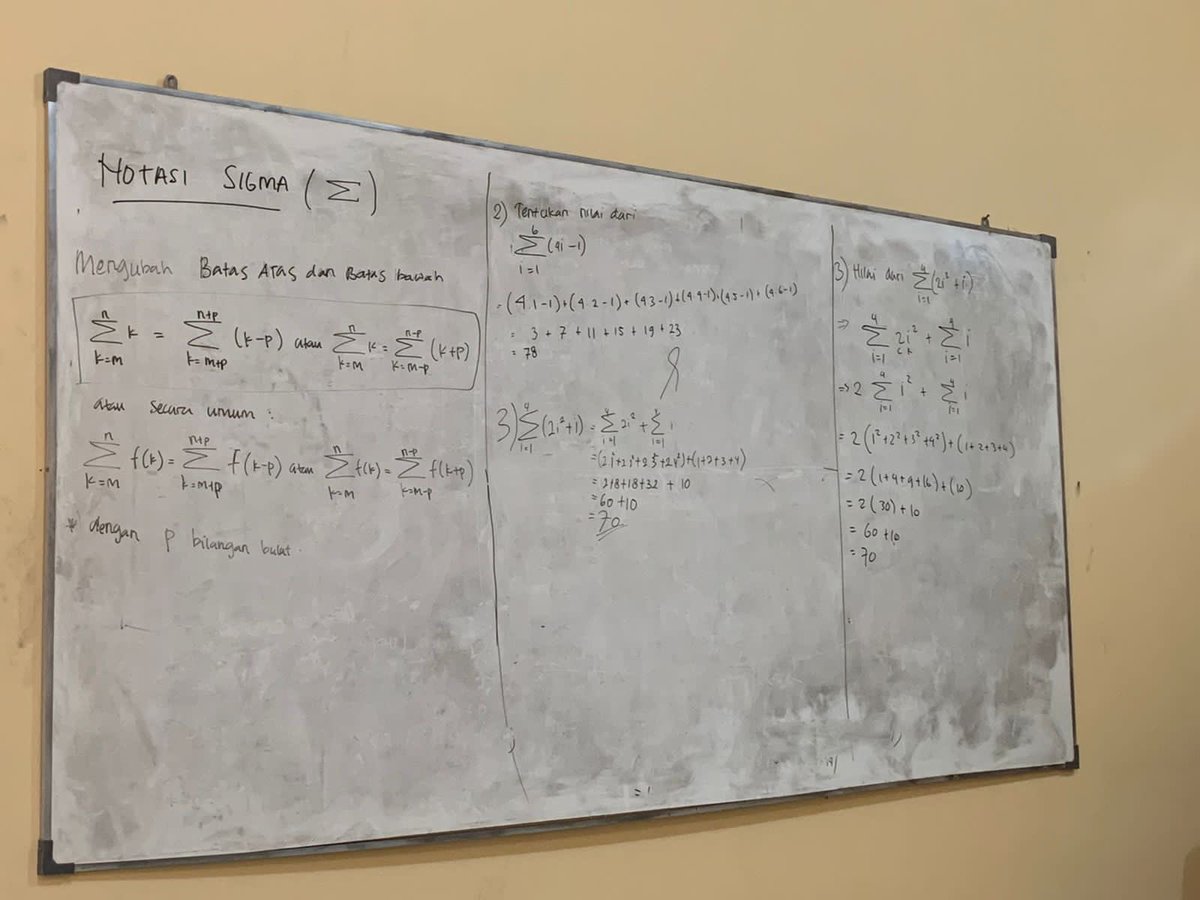 NOTASI SIGMA (Σ)
Mengubah Batas Atas dan Batas bawah
n∑k=m k = n+p∑k=m+p (k-p) atau n∑k=m k = n-p∑k=m-p (k+p)
atau secara umum :
n∑k=m f(k) = n+p∑k=m+p f(k-p) atau n∑k=m f(k) = n-p∑k=m-p f(k+p)
* dengan p bilangan bulat.
2) Tentukan nilai dari
6∑i=1 (4i-1)
= (4.1-1)+(4.2-1)+(4.3-1)+(4.4-1)+(4.5-1)+(4.6-1)
= 3 + 7 + 11 + 15 + 19 + 23
= 78
3) 4∑i=1 (2i²+i) = 4∑i=1 2i² + 4∑i=1 i
+(1+2+3+4)
= 2+8+18+32 + 10
= 60+10
= 70
3) Nilai dari 4∑i=1 (2i²+i)
⇒ 4∑i=1 2i² + 4∑i=1 i
⇒ 2 4∑i=1 i² + 4∑i=1 i
= 2(1²+2²+3²+4²)+(1+2+3+4)
= 2(1+4+9+16)+(10)
= 2(30)+10
= 60+10
= 70